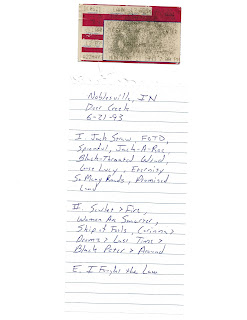 Noblesville, IN
Deer Creek
6-21-93
I. Jack Straw, FOTD,
Spoonful, Jack-A-Roe,
Black-Throated Wind,
Loose Lucy, Eternity
So Many Roads, Promised
Land
II. Scarlet > Fire,
Women Are Smarter,
Ship of Fools, Corinna >
Drums > Last Time >
Black Peter > Around
E. I Fought the Law